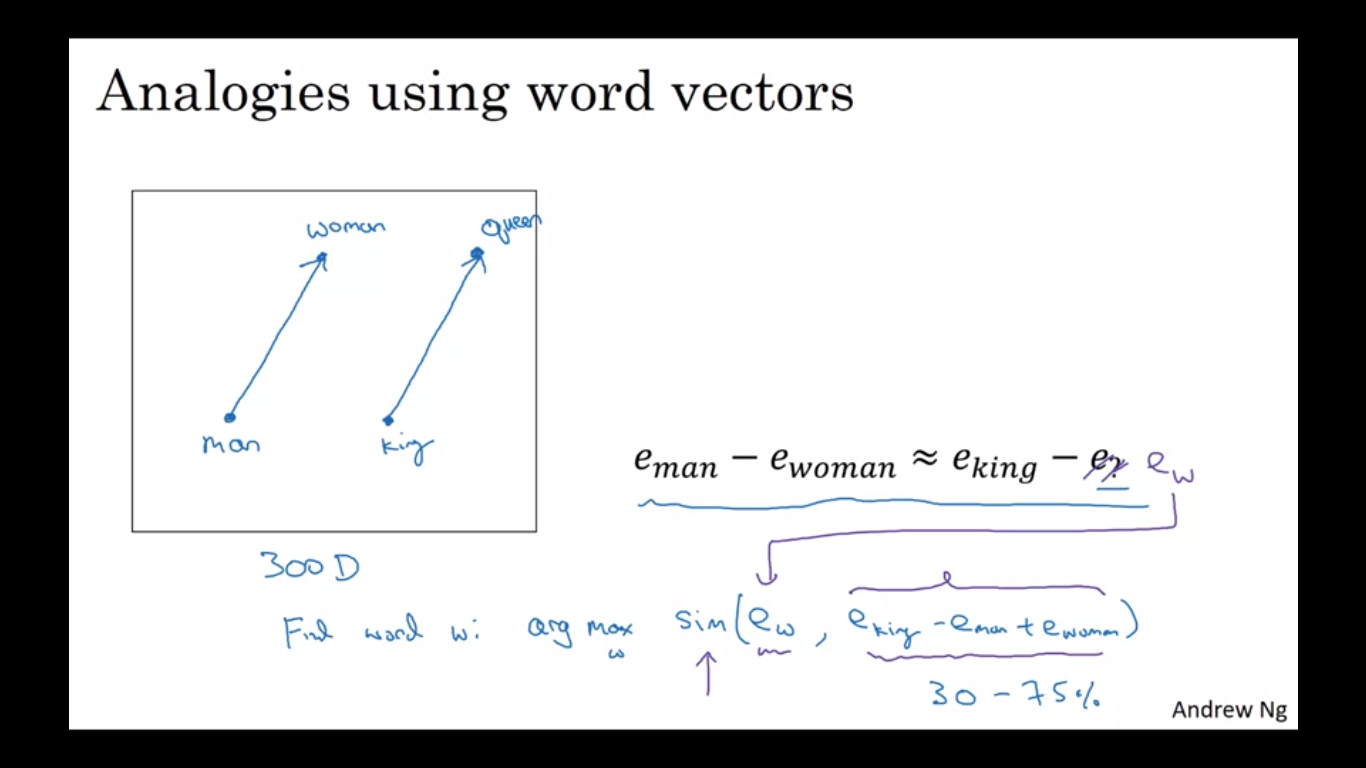 Analogies using word vectors
woman
Queen
man
king
e_man − e_woman ≈ e_king − e_? e_w
300 D
Find word w: arg max_w sim(e_w, e_king - e_man + e_woman)
30 - 75%
Andrew Ng